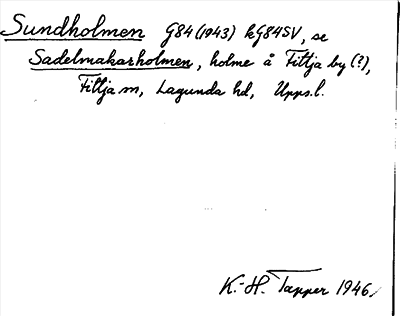 Sundholmen G84(1943) kG84SV, se
Sadelmakarholmen, holme å Fittja by (?),
Fittja sn, Lagunda hd, Upps.l.
K.-H. Tapper 1946.